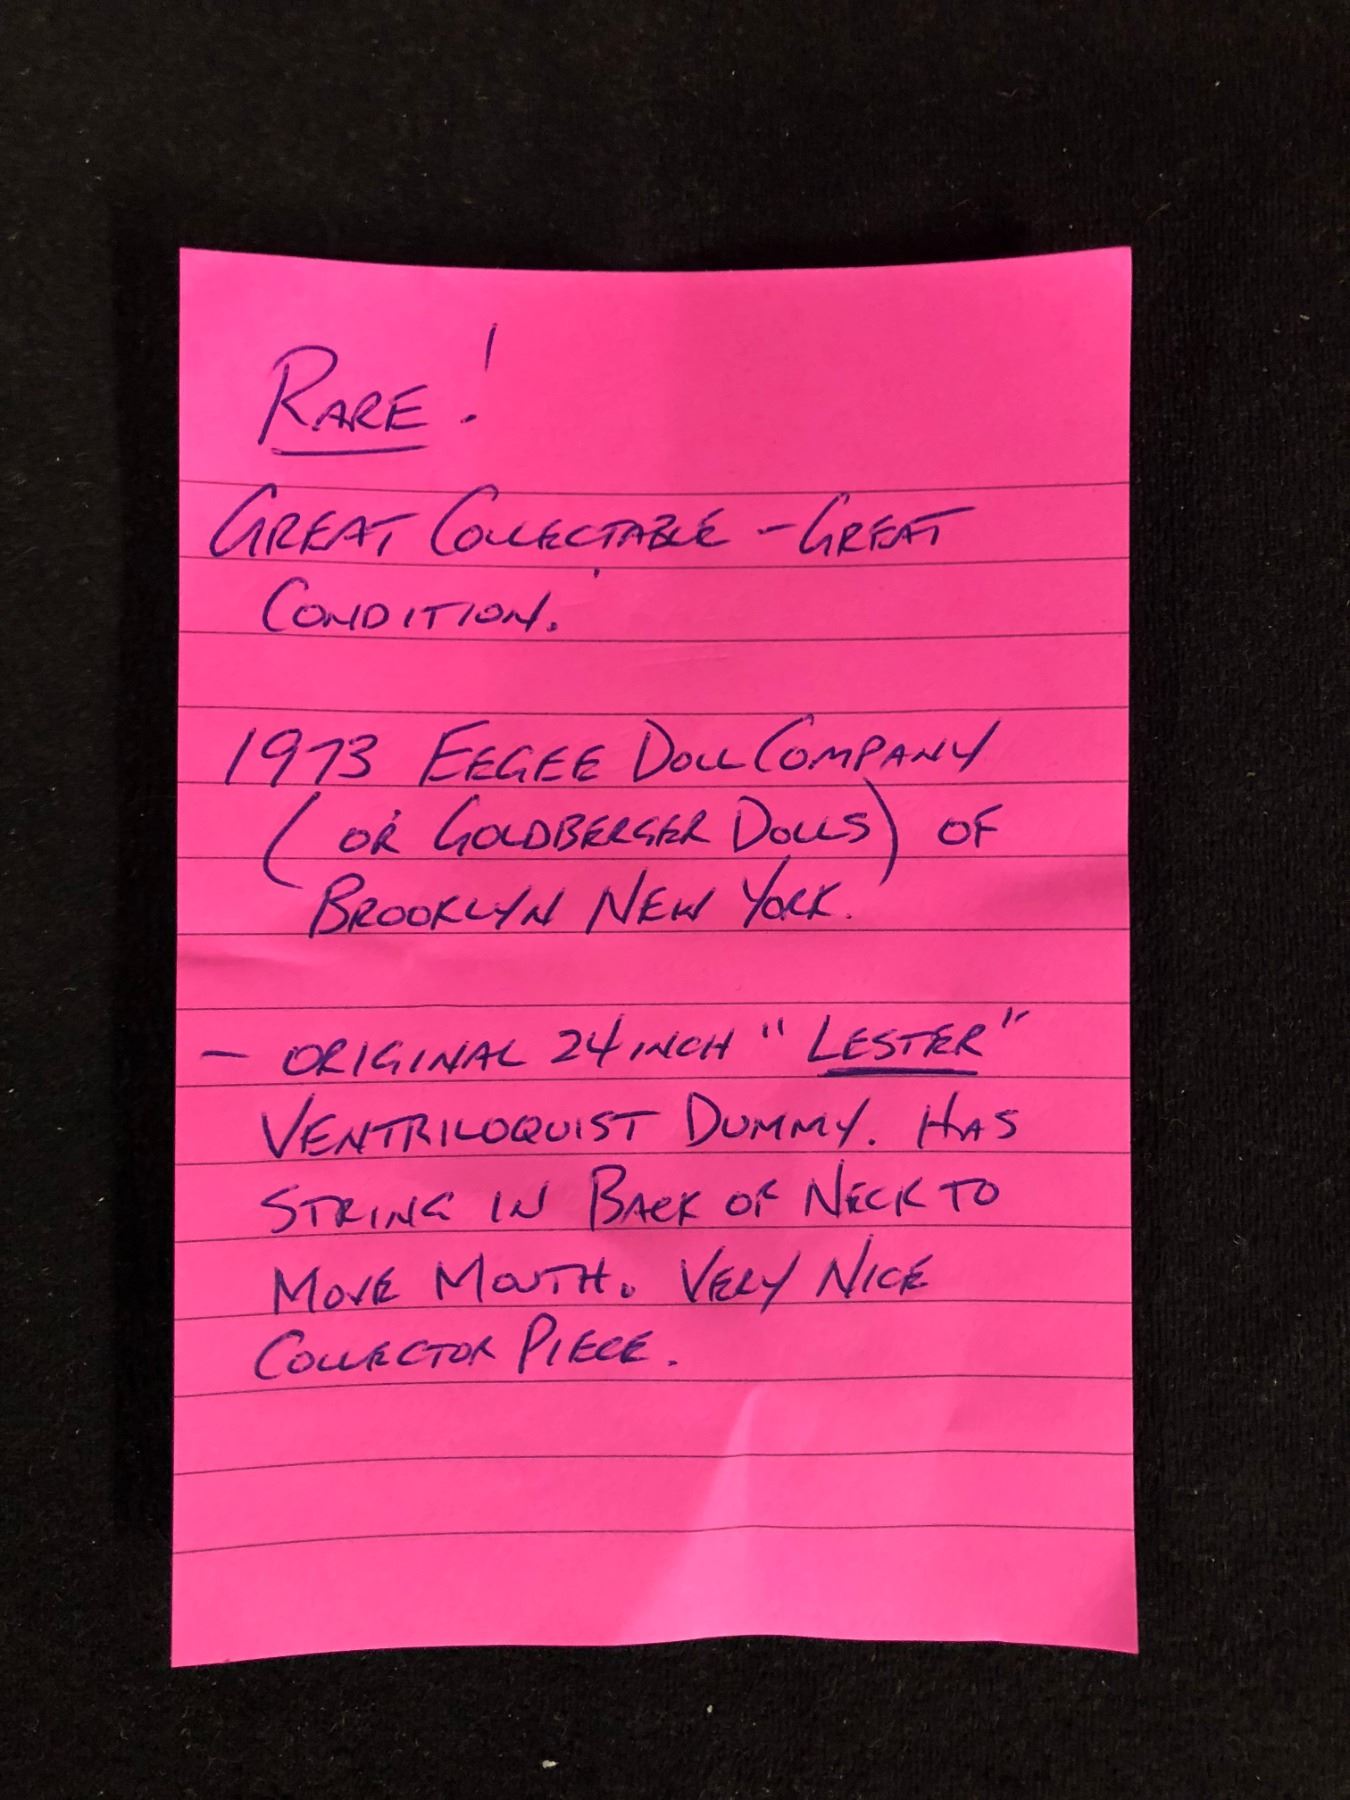 RARE!
GREAT COLLECTABLE - GREAT
CONDITION.
1973 EEGEE DOLL COMPANY
(OR GOLDBERGER DOLLS) OF
BROOKLYN NEW YORK.
- ORIGINAL 24 INCH "LESTER"
VENTRILOQUIST DUMMY. HAS
STRING IN BACK OF NECK TO
MOVE MOUTH. VERY NICE
COLLECTOR PIECE.